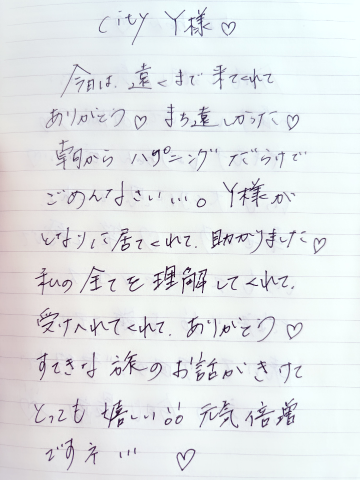 city Y様♡
今日は、遠くまで来てくれて
ありがとう♡ まち遠しかった♡
朝から ハプニングだらけで
ごめんなさい…。Y様が
となりに居てくれて、助かりました♡
私の全てを理解してくれて、
受け入れてくれて、ありがとう♡
すてきな旅のお話がきけて
とっても嬉しい 元気倍増
ですネ… ♡